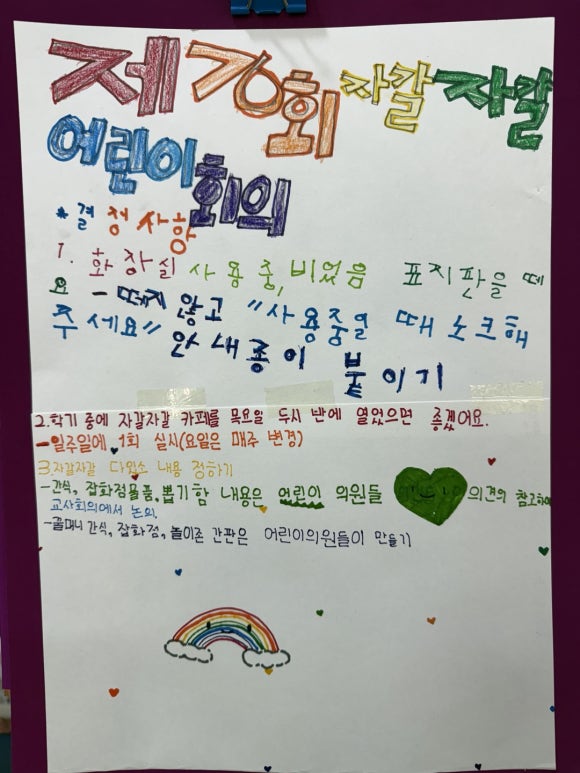 제 70회 자갈자갈
어린이회의
* 결정사항
1. 화장실 사용중, 비었음 표지판을 떼
요 - 떼지 않고 "사용중일 때 노크해
주세요" 안내종이 붙이기
2. 학기 중에 자갈자갈 카페를 목요일 두시 반에 열었으면 좋겠어요.
- 일주일에 1회 실시(요일은 매주 변경)
3. 자갈자갈 다원소 내용 정하기
- 간식, 잡화점물품, 뽑기함 내용은 어린이 의원들 의견의 참고하여
교사회의에서 논의.
- 꿀매니 간식, 잡화점, 놀이존 간판은 어린이의원들이 만들기